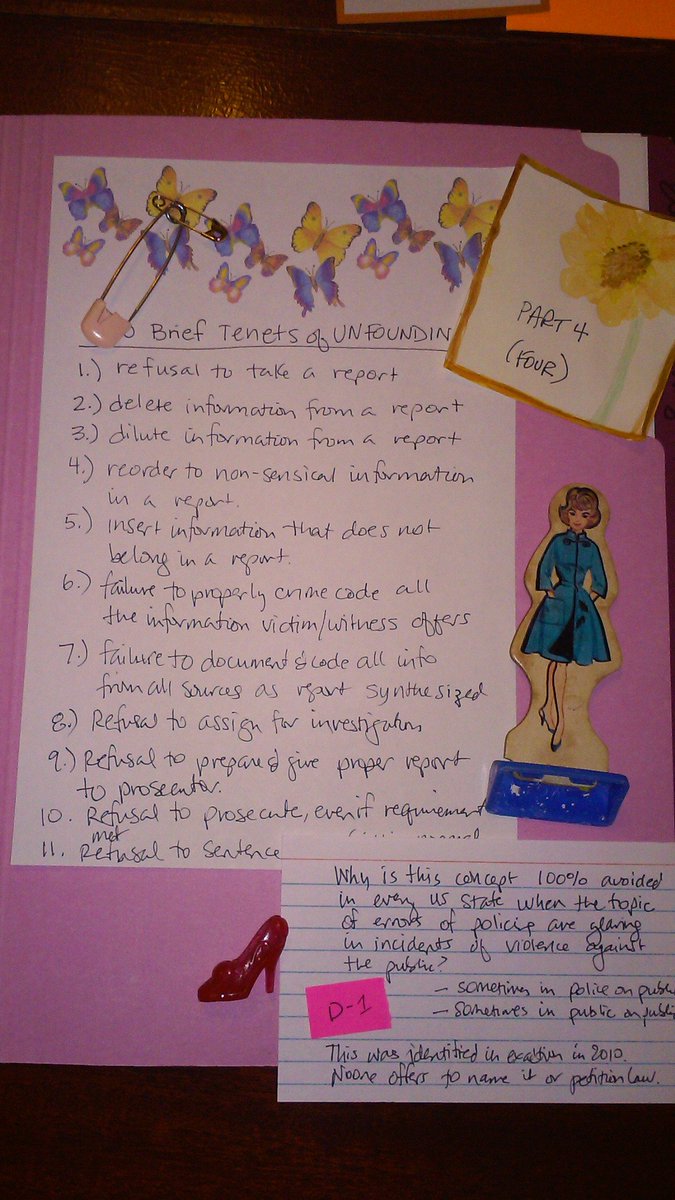 Brief Tenets of UNFOUNDIN
PART 4
(FOUR)
1.) refusal to take a report
2.) delete information from a report
3.) dilute information from a report
4.) reorder to non-sensical information
in a report.
5.) insert information that does not
belong in a report.
6.) failure to properly crime code all
the information victim/witness offers
7.) failure to document & code all info
from all sources as report synthesized
8.) Refusal to assign for investigation
9.) Refusal to prepare & give proper report
to prosecutor.
10. Refusal to prosecute, even if requirement
met
11. Refusal to sentence
Why is this concept 100% avoided
in every US State when the topic
of errors of policing are glaring
in incidents of violence against
the public?
- sometimes in police on public
- Sometimes in public on public
D-1
This was identified in in 2010.
Noone offers to name it or petition law.